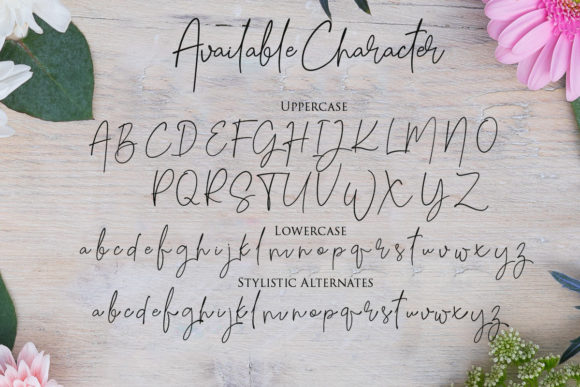 Available Character
Uppercase
ABCDEFGHIJKLMNO
PQRSTUVWXYZ
Lowercase
abcdefghijklmnopqrstuvwxyz
Stylistic Alternates
abcdefghijklmnopqrstuvwxyz